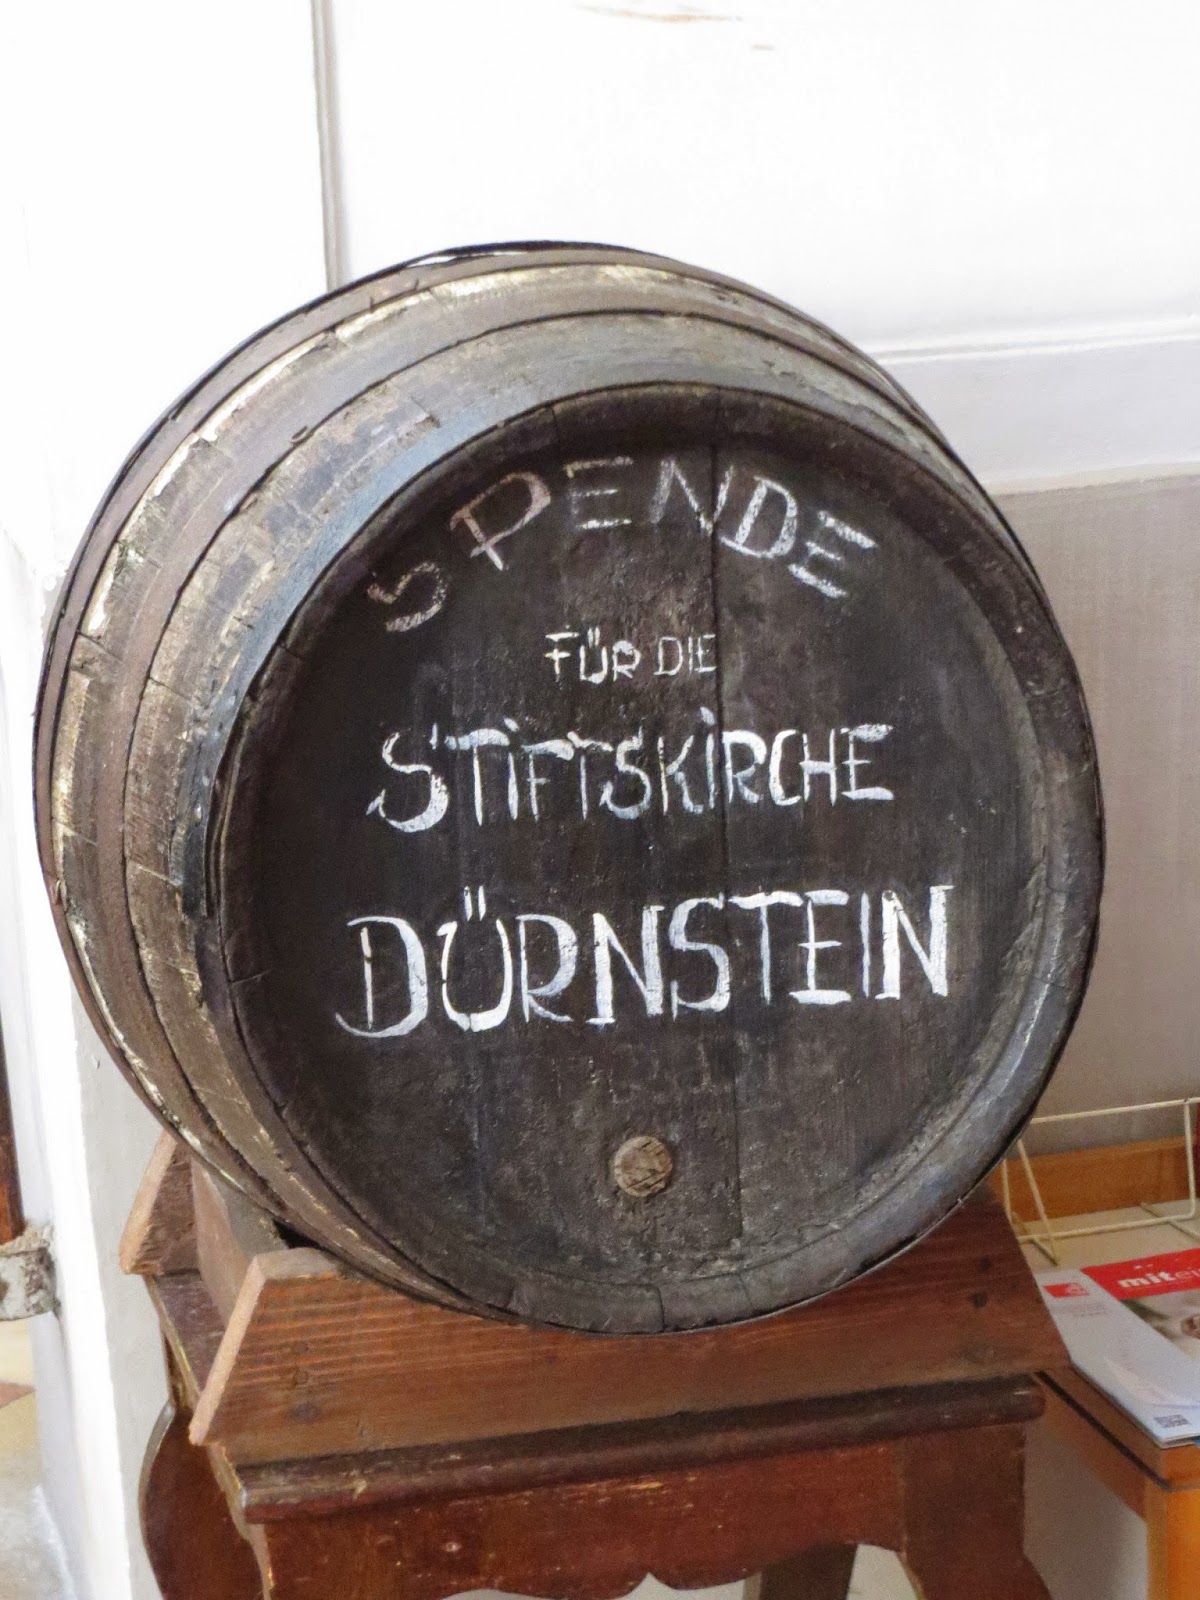 SPENDE
FÜR DIE
STIFTSKIRCHE
DÜRNSTEIN